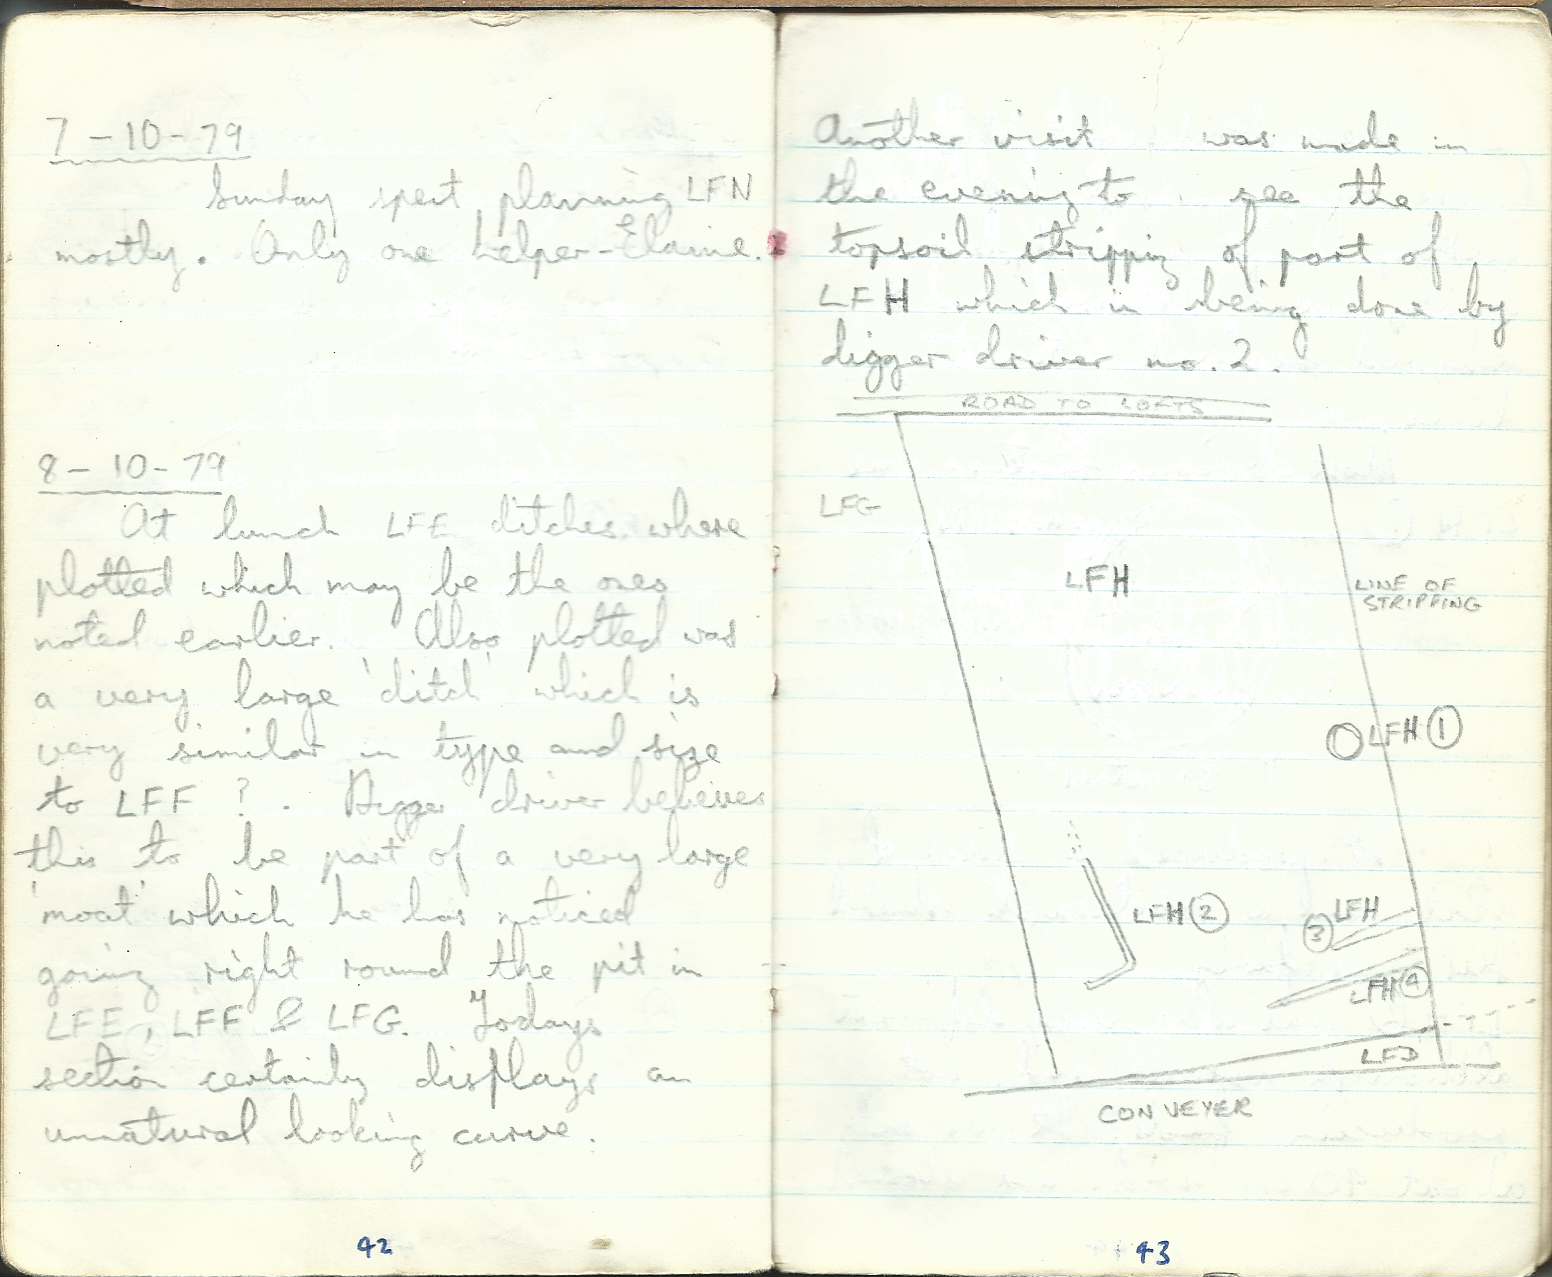 7-10-79
Sunday spent planning LFN
mostly. Only one helper-Elaine.
8-10-79
At lunch LFE ditches where
plotted which may be the ones
noted earlier. Also plotted was
a very large 'ditch' which is
very similar in type and size
to LFF ?. Digger driver believes
this to be part of a very large
'moat' which he has noticed
going right round the pit in
LFE, LFF & LFG. Todays
section certainly displays an
unnatural looking curve.
42
Another visit was made in
the evening to see the
topsoil stripping of part of
LFH which is being done by
digger driver no. 2.
ROAD TO LOFTS
LFG
LFH
LINE OF
STRIPPING
LFH 1
LFH 2
LFH
3
LFH 4
LFD
CONVEYER
43